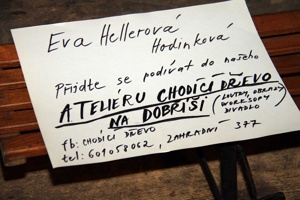 Eva Hellerová
Hodinková
Přijďte se podívat do našeho
ATELIÉRU CHODÍCÍ DŘEVO
NA DOBŘÍŠI (LOUTKY, OBRAZY
WORKSOPY
DIVADLO
fb: CHODÍCÍ DŘEVO
tel: 609058062, ZAHRADNÍ 377